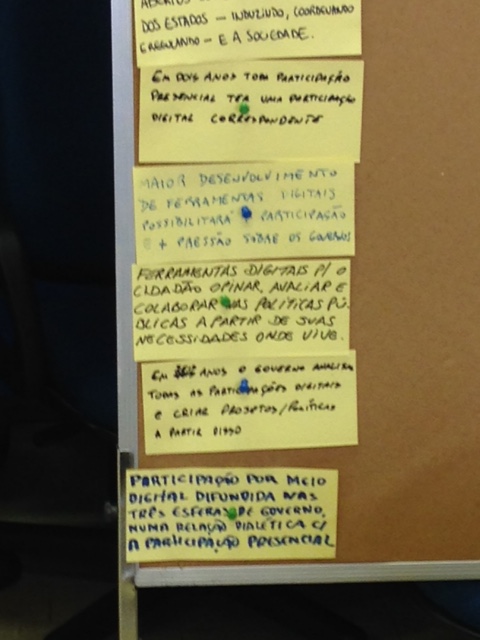 ABERTOS
DOS ESTADOS – INDUZINDO, COORDENANDO
E REGULANDO – E A SOCIEDADE.
EM DOIS ANOS TODA PARTICIPAÇÃO
PRESENCIAL TEM UMA PARTICIPAÇÃO
DIGITAL CORRESPONDENTE
MAIOR DESENVOLVIMENTO
DE FERRAMENTAS DIGITAIS
POSSIBILITARÁ PARTICIPAÇÃO
E + PRESSÃO SOBRE OS GOVERNOS
FERRAMENTAS DIGITAIS P/ O
CIDADÃO OPINAR, AVALIAR E
COLABORAR NAS POLÍTICAS PÚ-
BLICAS A PARTIR DE SUAS
NECESSIDADES ONDE VIVE.
EM ANOS O GOVERNO ANALISA
TODAS AS PARTICIPAÇÕES DIGITAIS
E CRIAR PROJETOS/POLÍTICAS
A PARTIR DISSO
PARTICIPAÇÃO POR MEIO
DIGITAL DIFUNDIDA NAS
TRÊS ESFERAS DE GOVERNO,
NUMA RELAÇÃO DIALÉTICA C/
A PARTICIPAÇÃO PRESENCIAL